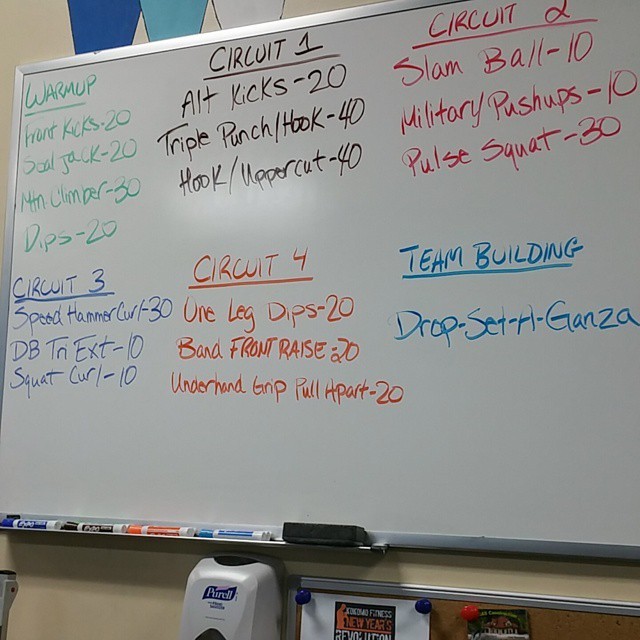 WARMUP
Front Kicks-20
Seal jack-20
Mtn Climber-30
Dips-20
CIRCUIT 1
Alt Kicks-20
Triple Punch/Hook-40
Hook/Uppercut-40
CIRCUIT 2
Slam Ball-10
Military Pushups-10
Pulse Squat-30
CIRCUIT 3
Speed Hammer Curl-30
DB Tri Ext-10
Squat Curl-10
CIRCUIT 4
One Leg Dips-20
Band FRONT RAISE-20
Underhand Grip Pull Apart-20
TEAM BUILDING
Drop-Set-A-Ganza
Purell
KOKOMO FITNESS
NEW YEAR'S
REVOLUTION